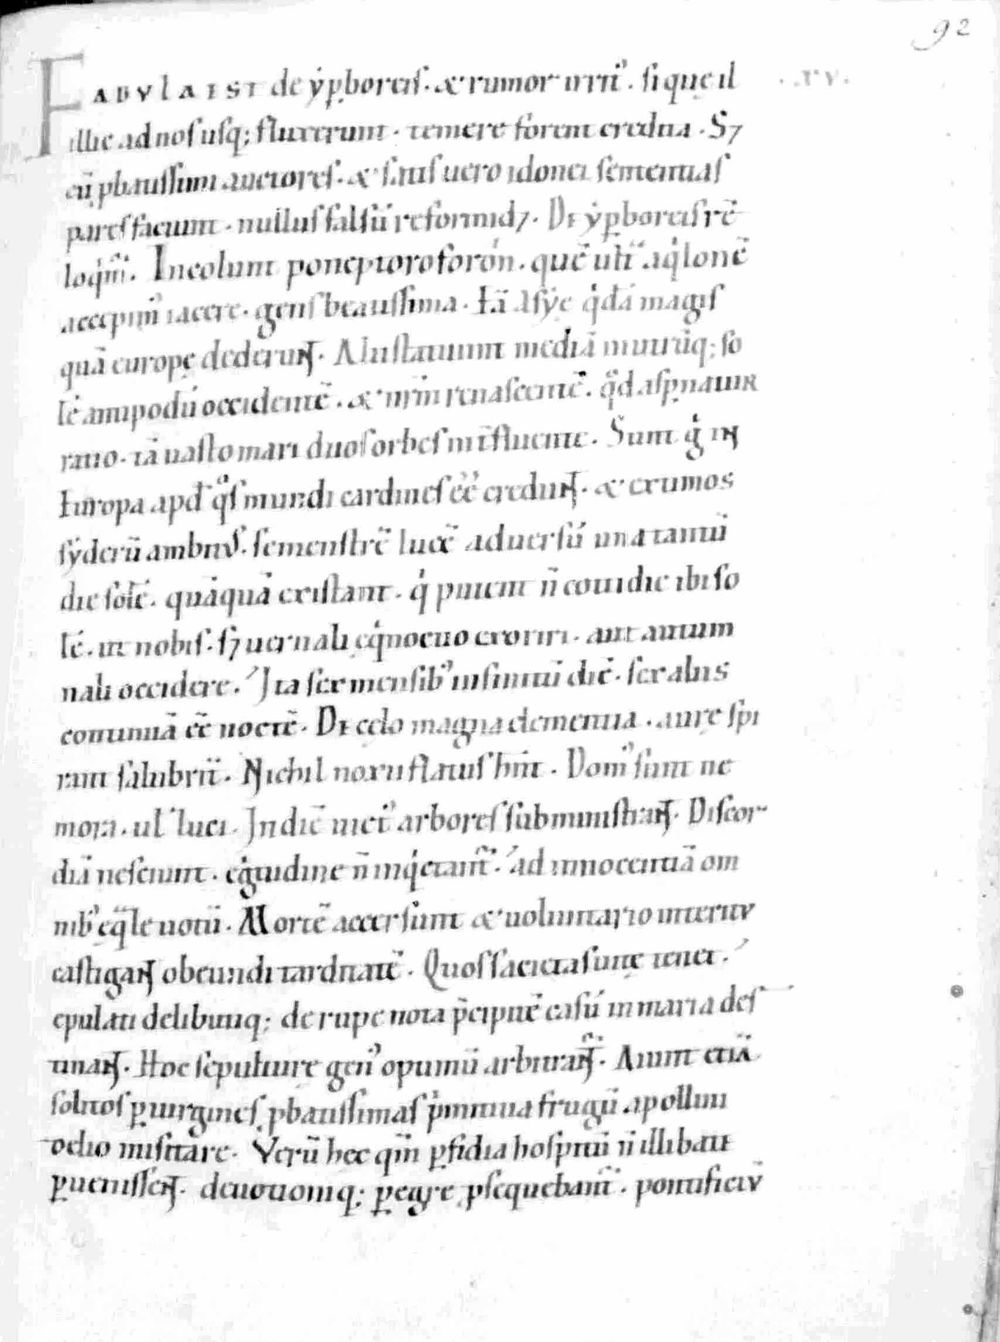 92
FABVLA EST de ẏꝑboreis. & rumor irrit᾽. si quę il .XV.
illic ad nos usq; fluxerunt. temere forent credita. S;
cū ꝓbatissimi auctores. & satis uero idonei sententias
pares faciunt. nullus falsū reformid;. De ẏꝑboreis rē
loq̇m̄᾽. Incolunt pone pteroforón. quē ult᾽ aq̇lonē
accepim᾽ iacere. gens beatissima. Eā Asẏę q̇dā magis
quā europę dederunt. Alii statuunt mediā int᾽ utrūq; so
lē antipodū occidentē. & nr̄m renascentē. q̊d aspnatur
ratio. tā uasto mari duos orbes int̄fluente. Sunt g̊ in
Europa apd̓ q̊s mundi cardines eē credunt. & extimos
sẏderū ambit᾽. semenstrē lucē aduersū una tantū
die solē. quāquā existant. q̇ putent n̄ cotidie ibi so
lē. ut nobis. s; uernali ęq̇noctio exoriri. autum
nali occidere. Ita sex mensib᾽ infinitū diē. sex aliis
continuā eē noctē. De celo magna clementia. aurę spi
rant salubrit̄. Nichil noxii flatus hn̄t. Dom᾽ sunt ne
mora. ul᾽ luci. In diē uict᾽ arbores subministrant. Discor
diā nesciunt. ęg̊tudine n̄ inq̇etant᾽. ad innocentiā om
nib᾽ ęq̄le uotū. Mortē accersunt & uoluntario interitu
castigant obeundi tarditatē. Quos sacietas uitę tenet.
epulati delibutiq; de rupe nota p̄cipitē casū in maria des
tinant. Hoc sepulture gen᾽ optimū arbitrant᾽. Aiunt etiā
solitos ꝑ uirgines ꝓbatissimas p̓mitiua frugū apollini
delio misitare. Verū hec qm̄ ꝑfidia hospitū n̄ illibate
ꝑuenissent. deuotioniq; ꝑegre ꝓsequebant᾽. pontificiū